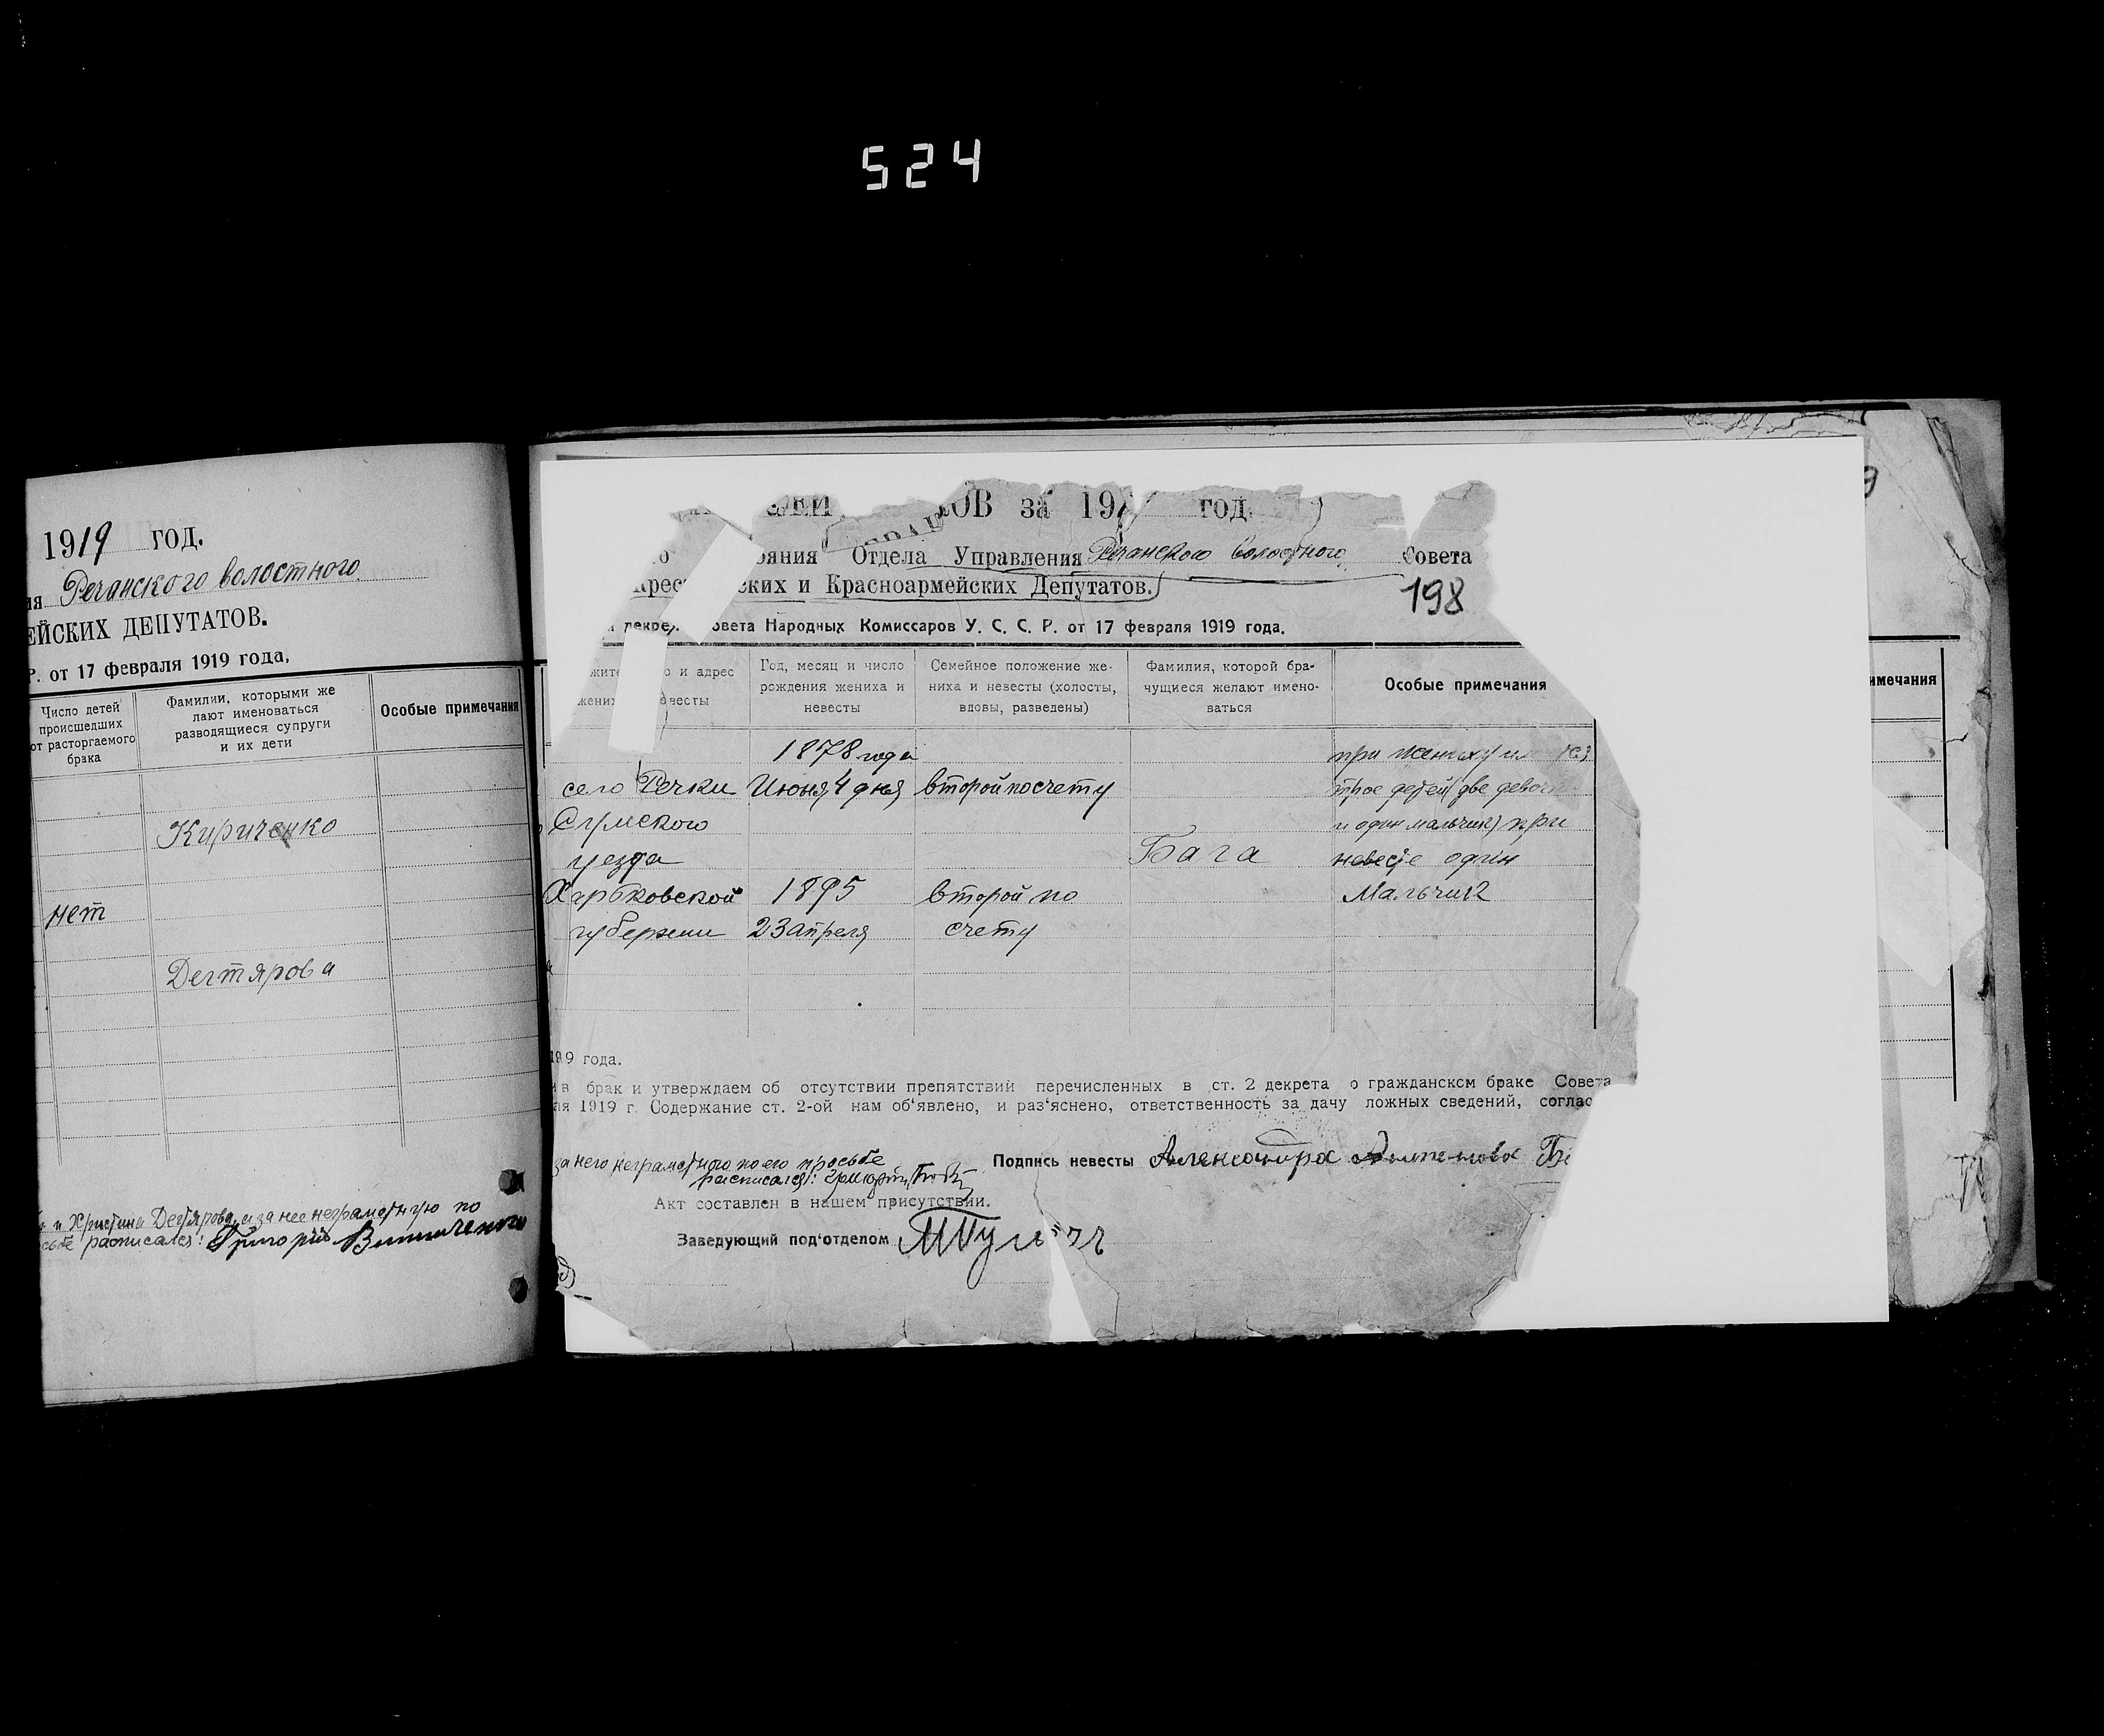 524
1919 год.
ия Речанского волостного
ЕЙСКИХ ДЕПУТАТОВ.
Р. от 17 февраля 1919 года,
Число детей происшедших от расторгаемого брака
Фамилии, которыми же
лают именоваться
разводящиеся супруги
и их дети
Особые примечания
Кириченко
нет
Дегтярова
и Христина Дегтярова, а за нее неграмотную по
сьбе расписался: Григорий Винниченко
ОВ за 19 год.
ояния Отдела Управления Речанского волостного Совета
Крес ских и Красноармейских Депутатов.
198
декре овета Народных Комиссаров У. С. С. Р. от 17 февраля 1919 года.
жите о и адрес
жени весты
Год, месяц и число
рождения жениха и
невесты
Семейное положение же-
ниха и невесты (холосты,
вдовы, разведены)
Фамилия, которой бра-
чущиеся желают имено-
ваться
Особые примечания
имечания
1878 года
при жениху
село Речки Июня 4 дня второй по счету трое детей (две девочки
Сумского и один мальчик) при
уезда Бага невесте один
Харьковской 1895 второй по Мальчик
губернии 23 апреля счету
1919 года.
ив брак и утверждаем об отсутствии препятствий перечисленных в ст. 2 декрета о гражданском браке Совета
ля 1919 г. Содержание ст. 2-ой нам об'явлено, и раз'яснено, ответственность за дачу ложных сведений, соглас
за него неграмотного по его просьбе
расписался:
Подпись невесты Александра
Акт составлен в нашем присутствии.
Заведующий под'отделом
9